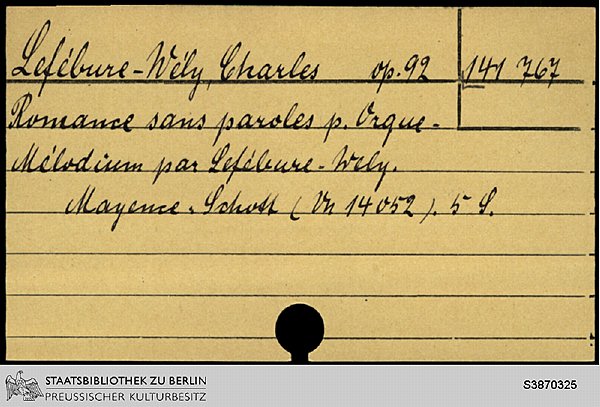 Lefébure-Wély, Charles op. 92 141 767
Romance sans paroles p. Orgue-
Mélodium par Lefébure-Wely.
Mayence, Schott (Vn 14052). 5 S.
STAATSBIBLIOTHEK ZU BERLIN
PREUSSISCHER KULTURBESITZ
S3870325